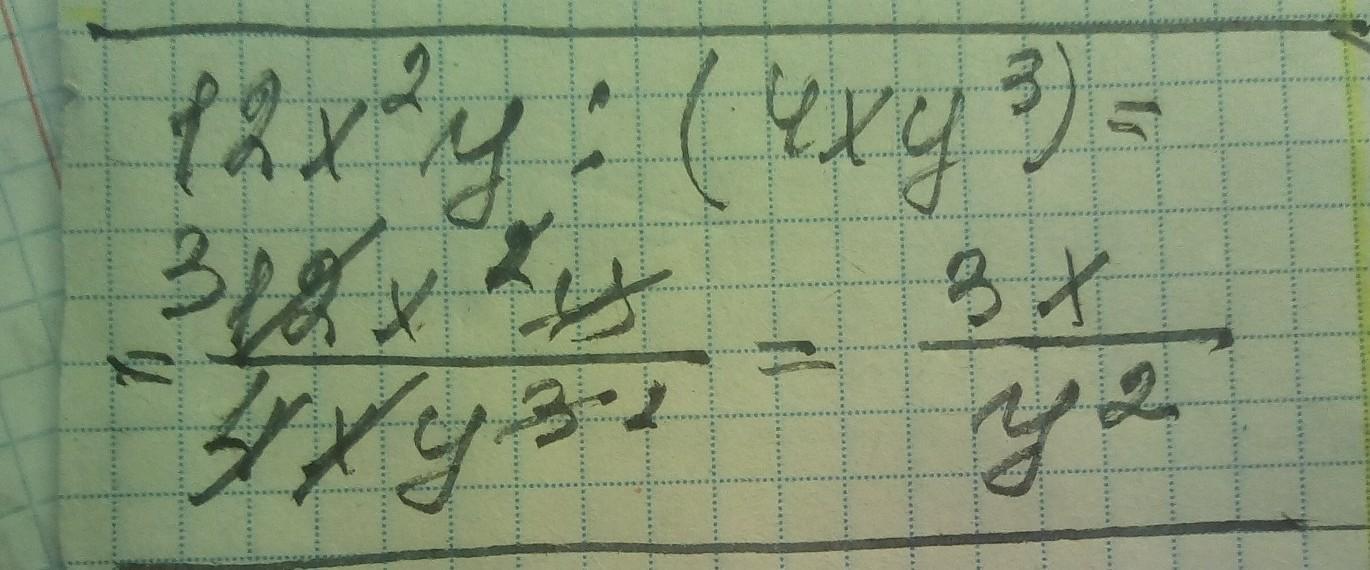 12x²y : (4xy³) =
= 3 12x²y / 4xy³ 2 = 3x / y²